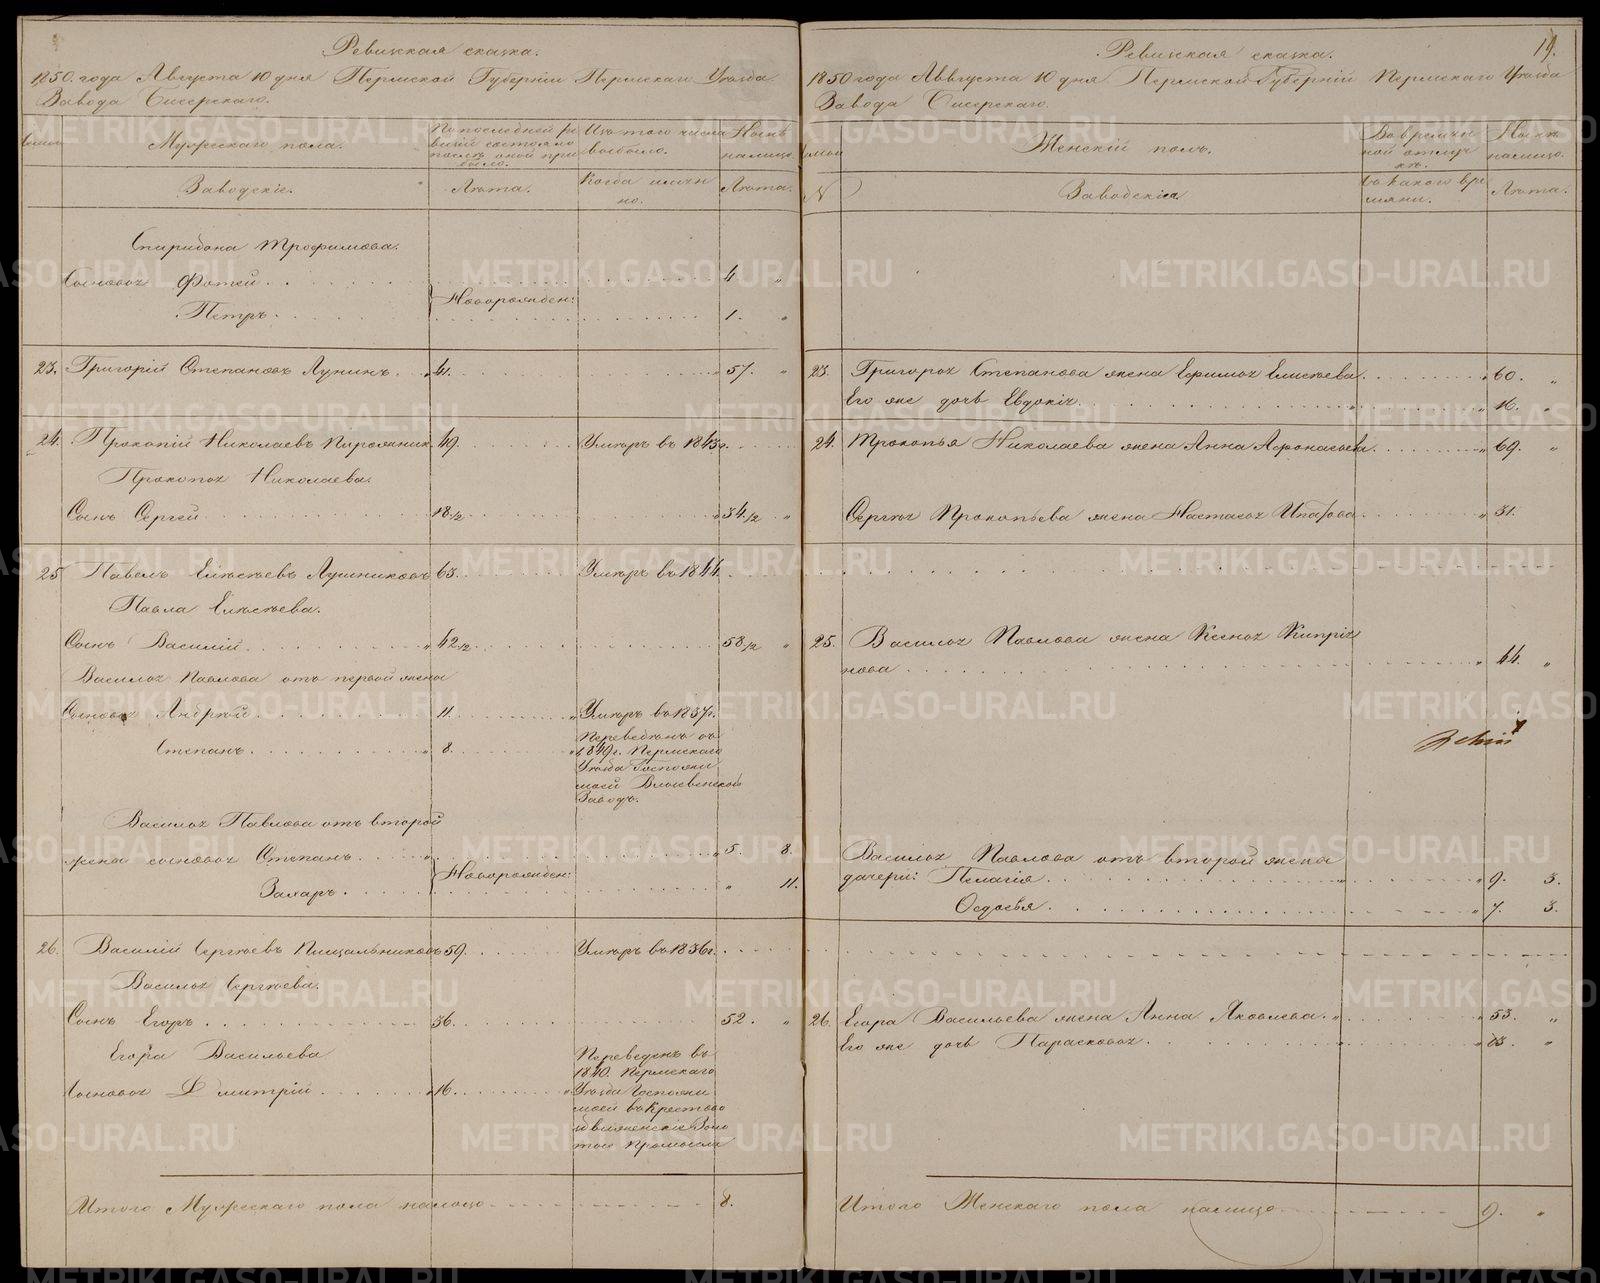 Ревизская сказка.
1850. года Августа 10 дня Пермской Губерніи Пермскаго Уѣзда
Завода Бисерскаго.
Мужескаго пола.
По последней ре
визіи состояло
и послѣ оной при
было.
Изъ того числа
выбыло.
Нынѣ
налицо.
Заводскіе.
Лѣта.
Когда имян
но.
Лѣта.
Спиридона Трофимова.
Сыновья Фотей 4. "
Новорожден:
Петръ. 1. "
23. Григорій Степановъ Лунинъ. 41. 57. "
24. Прокопій Николаевъ 49. Умеръ въ 1843г.
Прокопья Николаева.
Сынъ Сергей 18 1/2 34 1/2 "
25 Павелъ Елисѣевъ Лушниковъ 63. Умеръ въ 1844.
Павла Елисѣева.
Сынъ Василій 42 1/2 58 1/2 "
Василья Павлова отъ первой жены
Сыновья Андрей 11. Умеръ въ 1837г.
Степанъ. 8. Переведенъ въ
1849г. Пермскаго
Уѣзда Госпожи
моей
Заводъ.
Василья Павлова отъ второй
жены сыновья Степанъ. 5. 8.
Новорожден:
Захаръ. " 11.
26. Василій Сергѣевъ Пищальниковъ 59. Умеръ въ 1836г.
Василья Сергѣева.
Сынъ Егоръ 36. 52. "
Егора Васильева
Сыновья Дмитрій 16. Переведенъ въ
1840. Пермскаго
Уѣзда Госпожи
моей въ Крестово
здвиженскіе Золо
тые Промысла
Итого Мужескаго пола налицо 8.
19.
Ревизская сказка.
1850 года Августа 10 дня Пермской Губерніи Пермскаго Уѣзда
Завода Бисерскаго.
Женскій полъ.
Во времян
ной отлуч
кѣ.
Нынѣ
налицо.
N
Заводскія
Съ какого вре
мяни.
Лѣта.
23. Григорья Степанова жена Ефимья Елисѣева 60. "
Его же дочь Евдокія 16. "
24. Прокопья Николаева жена Анна Афонасьева 69. "
Сергѣя Прокопьева жена Настасья Ипатова 31.
25. Василья Павлова жена Ксенья Кипрія
нова 44. "
Василья Павлова отъ второй жены
дочери: Пелагія 9. 3.
Федосья 7. 3.
26. Егора Васильева жена Анна Яковлева 53. "
Его же дочь Парасковья 13. "
Итого Женскаго пола налицо 9. "
METRIKI.GASO-URAL.RU